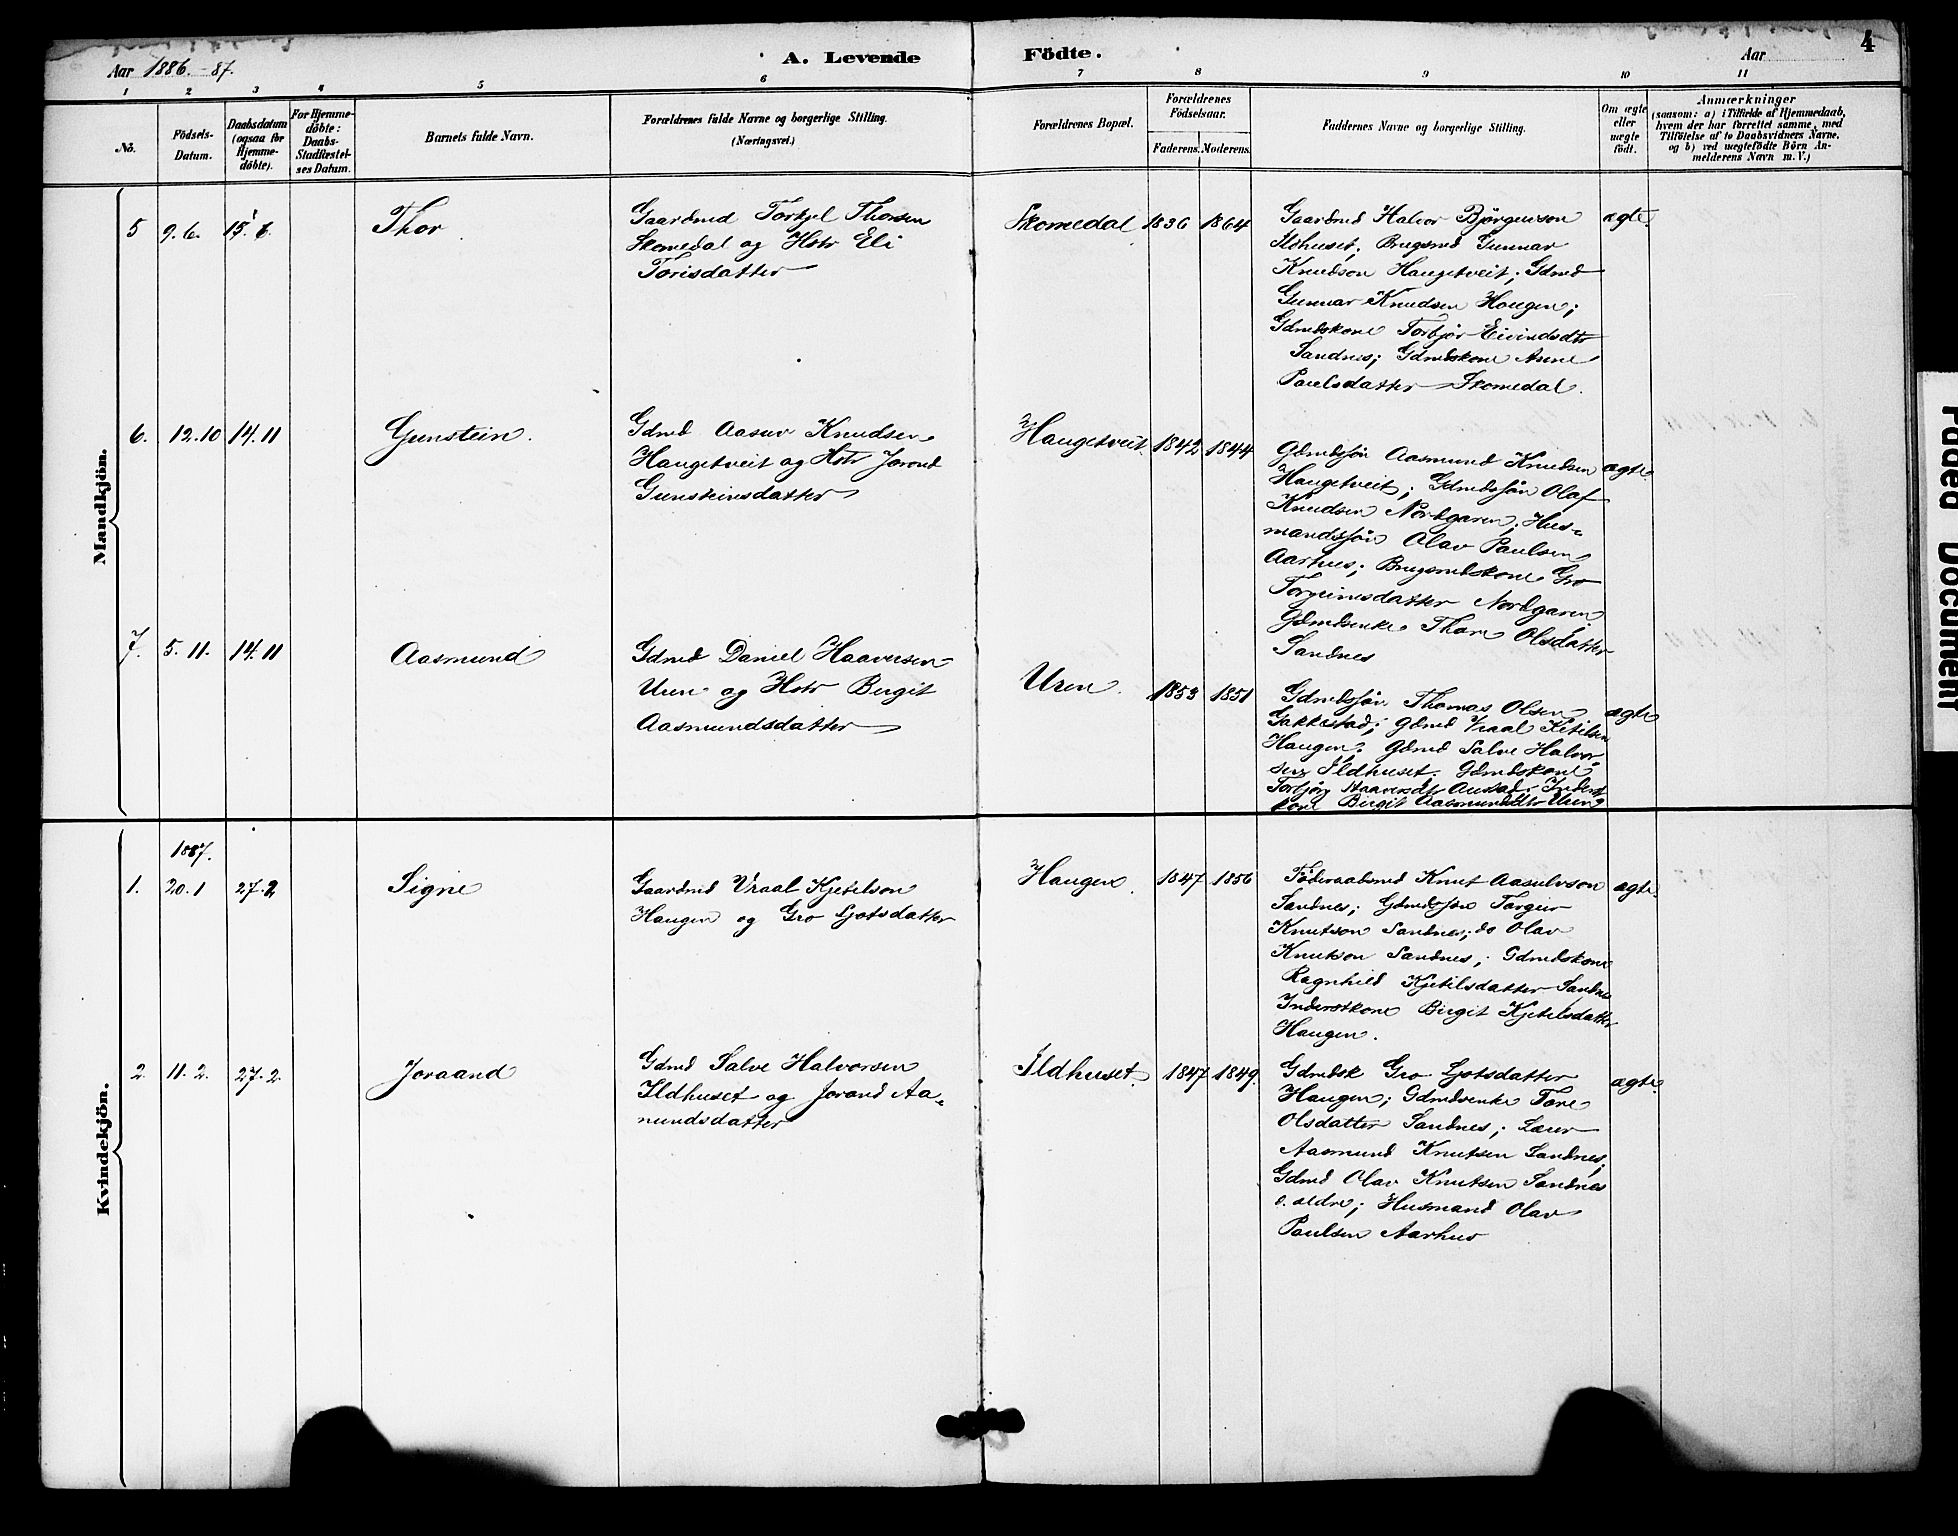 Aar 1886.-87.
A. Levende Födte.
Aar
4
1 2 3 4 5 6 7 8 9 10 11
No.
Födsels-Datum.
Daabsdatum (ogsaa for Hjemmedöbte).
For Hjemmedöbte: Daabs-Stadfæstelses Datum.
Barnets fulde Navn.
Forældrenes fulde Navne og borgerlige Stilling.
(Næringsvei.)
Forældrenes Bopæl.
Forældrenes Födselsaar.
Faderens. Moderens.
Faddernes Navne og borgerlige Stilling.
Om ægte eller uægte födt.
Anmærkninger
(saasom: a) i Tilfælde af Hjemmedaab, hvem der har forrettet samme, med Tilföielse af to Daabsvidners Navne, og b) ved uegtefödte Börn Anmelderens Navn m. V.)
Mandkjön.
5 9.6. 15.6. Thor
Gaardmd Torkjel Thorsen
Skomedal og Hstr Eli
Torisdatter
Skomedal 1836 1864
Gaardmd Halvor Björgenson
Ildhuset, Brugsmd Gunnar
Knudson Haugetveit; Gdmd
Gunnar Knudsen Haugen;
Gdmdskone Torbjör Eivindsdtr
Sandnes; Gdmdskone Anne
Paulsdatter Skomedal.
ægte.
6. 12.10 14.11 Gunstein.
Gdmd Aasuv Knudsen
Haugetveit og Hstr Jorond
Gunsteinsdatter
Haugetveit. 1842 1844
Gdmdsjön Aasmund Knudsen
Haugetveit; Gdmdssön Olaf
Knudsen Nordgaren; Hus-
mandssön Olav Paulsen
Aarhus; Brugsmdskone Gro
Torgeirnesdatter Nordgaren
Gdmdsenke Thore Olsdatter
Sandnes
ægte.
7. 5.11. 14.11 Aasmund
Gdmd Daniel Haaversen
Uren og Hstr Birgit
Aasmundsdatter
Uren. 1853 1851
Gdmdssön Thomas Olsen
Gakkestad; Gdmd Vraal Ketilsen
Haugen. Gdmd Salve Halvor-
sen Ildhuset. Gdmdskone
Torbjörg Haaversdtr Austad. Inderst
kone Birgit Aasmundsdtr Uren
ægte
Kvindekjön.
1887.
1. 20.1 27.2 Signe
Gaardmd Vraal Kjetilson
Haugen og Gro Ljotsdatter
Haugen. 1847 1856
Föderaadsmd Knut Aasulvson
Sandnes; Gdmdssön Torgeir
Knutson Sandnes; do Olav
Knutson Sandnes; Gdmdskone
Ragnhild Kjetilsdatter Sandnes
Inderstkone Birgit Kjetilsdatter
Haugen.
ægte.
2. 11.2. 27.2 Joraand
Gdmd Salve Halvorsen
Ildhuset og Jorand Aa-
mundsdatter
Ildhuset. 1847 1849.
Gdmdsk Gro Ljotsdatter
Haugen; Gdmdsenke Tore
Olsdatter Sandnes; Lærer
Aasmund Knutsen Sandnes;
Gdmd Olav Knutsen Sandnes
d. ældre; Husmand Olav
Paulsen Aarhus
ægte.
Faded Document